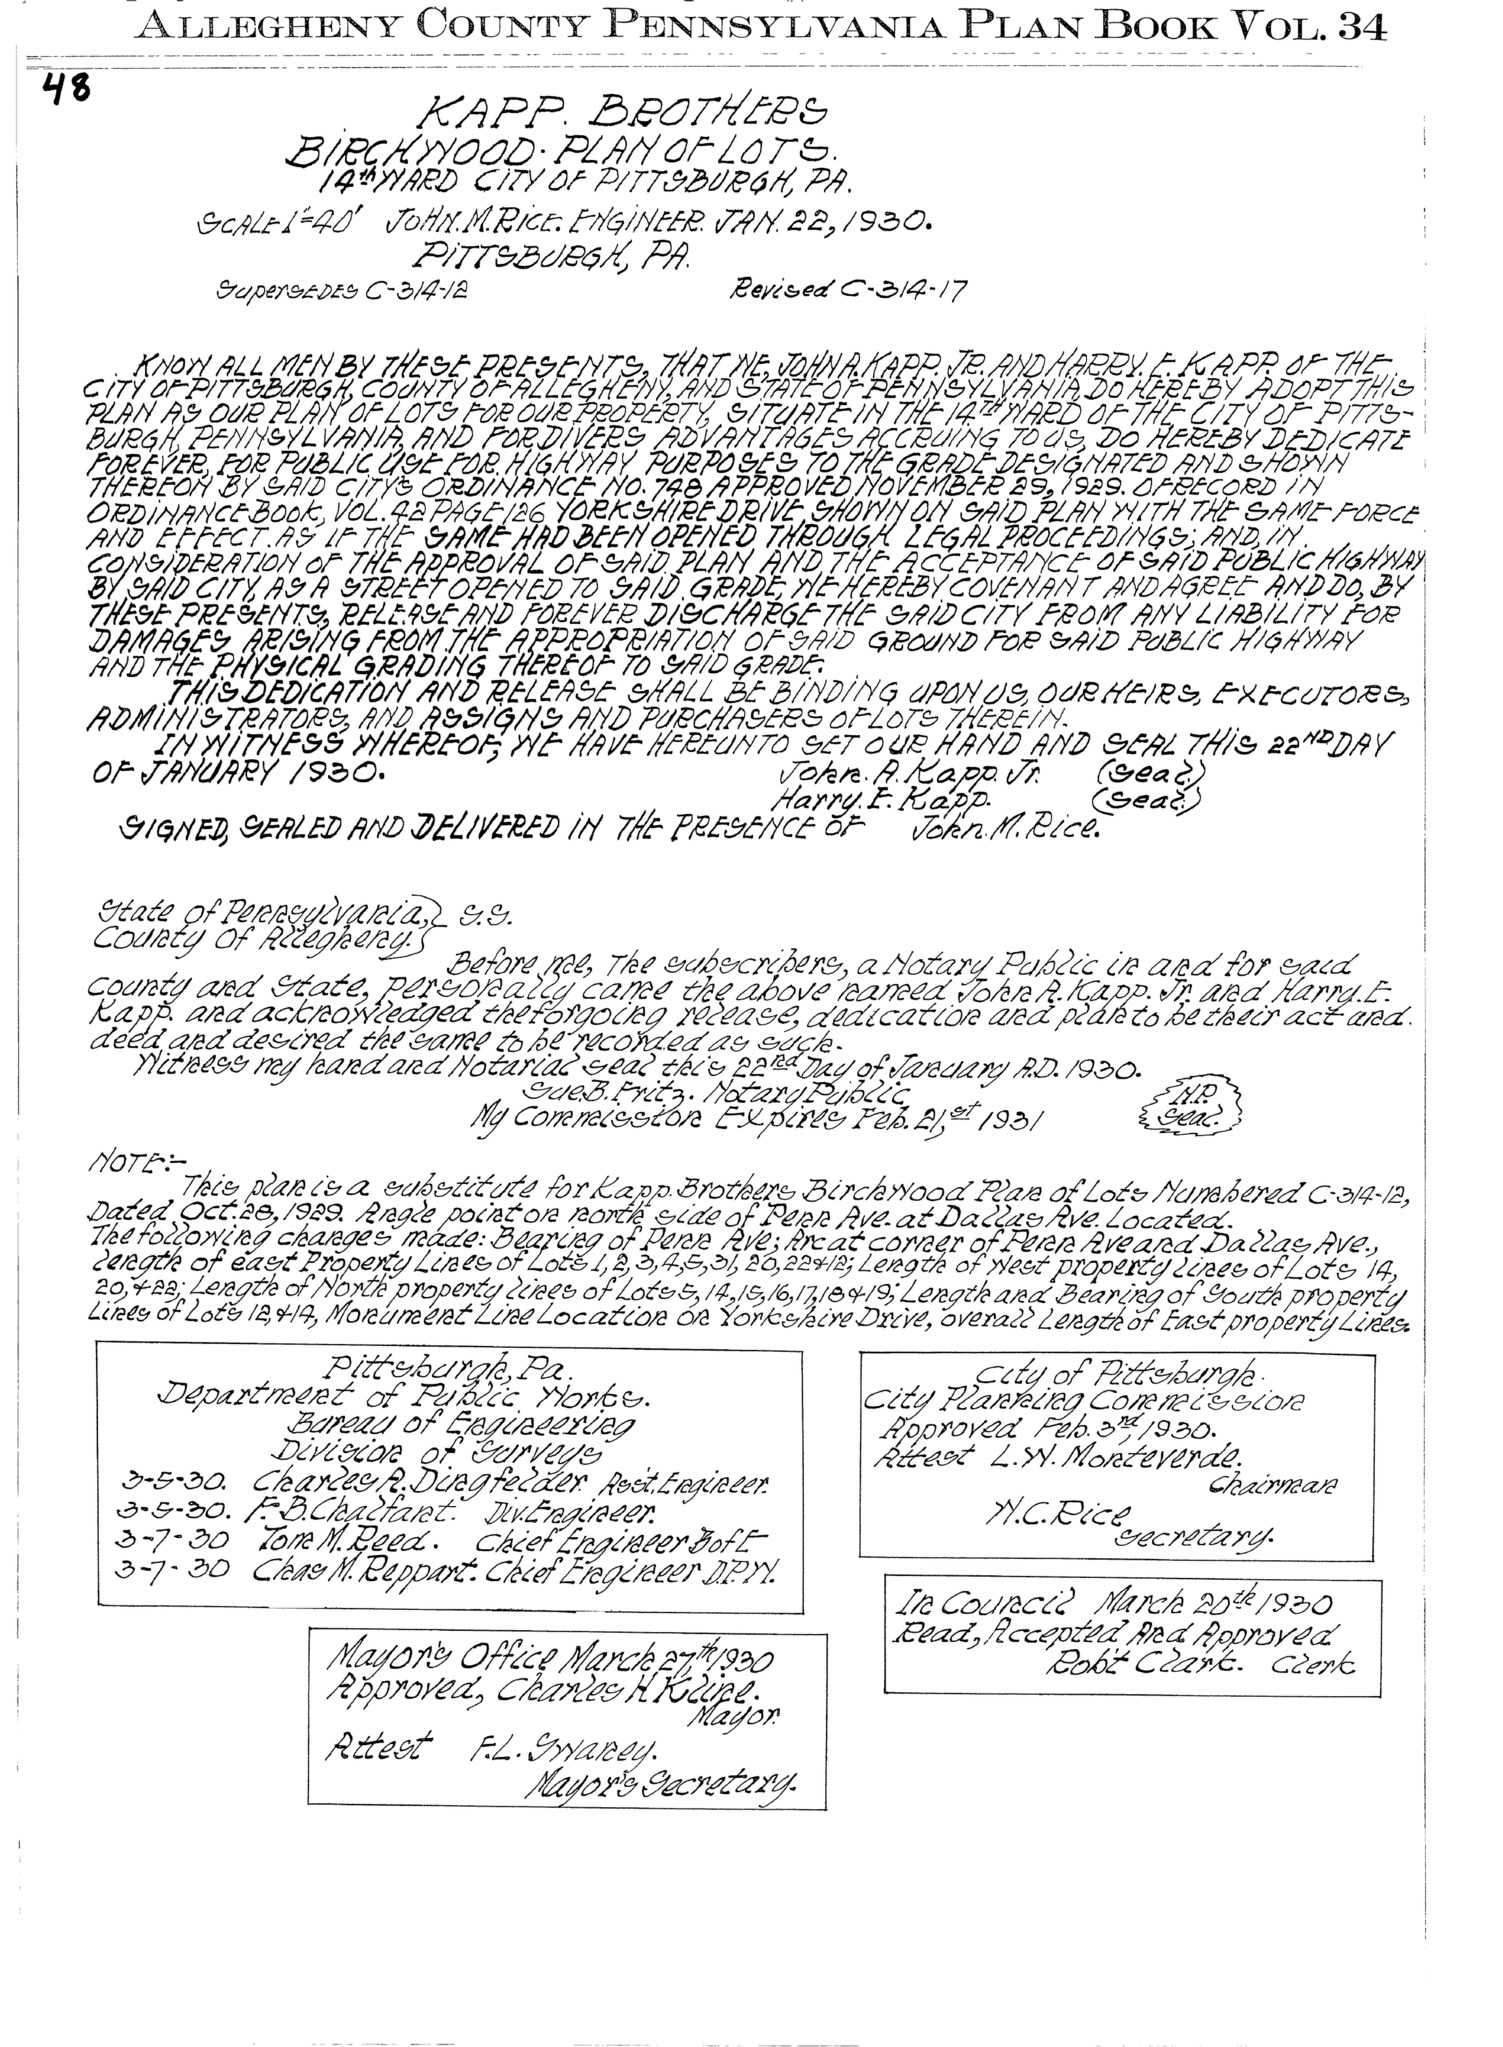 ALLEGHENY COUNTY PENNSYLVANIA PLAN BOOK VOL. 34
48
KAPP. BROTHERS
BIRCHWOOD. PLAN OF LOTS.
14th WARD CITY OF PITTSBURGH, PA.
SCALE 1"=40' JOHN. M. RICE. ENGINEER. JAN. 22, 1930.
PITTSBURGH, PA.
SUPERSEDES C-314-12 Revised C-314-17
KNOW ALL MEN BY THESE PRESENTS, THAT WE, JOHN A. KAPP. JR. AND HARRY. E. KAPP. OF THE
CITY OF PITTSBURGH, COUNTY OF ALLEGHENY, AND STATE OF PENNSYLVANIA, DO HEREBY ADOPT THIS
PLAN AS OUR PLAN OF LOTS FOR OUR PROPERTY, SITUATE IN THE 14TH WARD OF THE CITY OF PITTS-
BURGH, PENNSYLVANIA, AND FOR DIVERS ADVANTAGES ACCRUING TO US, DO HEREBY DEDICATE
FOREVER, FOR PUBLIC USE FOR HIGHWAY PURPOSES TO THE GRADE DESIGNATED AND SHOWN
THEREON BY SAID CITY'S ORDINANCE NO. 748 APPROVED NOVEMBER 29, 1929. OF RECORD IN
ORDINANCE BOOK, VOL. 42 PAGE 126 YORKSHIRE DRIVE SHOWN ON SAID PLAN WITH THE SAME FORCE
AND EFFECT. AS IF THE SAME HAD BEEN OPENED THROUGH LEGAL PROCEEDINGS; AND, IN
CONSIDERATION OF THE APPROVAL OF SAID PLAN AND THE ACCEPTANCE OF SAID PUBLIC HIGHWAY
BY SAID CITY, AS A STREET OPENED TO SAID GRADE, WE HEREBY COVENANT AND AGREE AND DO, BY
THESE PRESENTS, RELEASE AND FOREVER DISCHARGE THE SAID CITY FROM ANY LIABILITY FOR
DAMAGES ARISING FROM THE APPROPRIATION OF SAID GROUND FOR SAID PUBLIC HIGHWAY
AND THE PHYSICAL GRADING THEREOF TO SAID GRADE.
THIS DEDICATION AND RELEASE SHALL BE BINDING UPON US, OUR HEIRS, EXECUTORS,
ADMINISTRATORS, AND ASSIGNS AND PURCHASERS OF LOTS THEREIN.
IN WITNESS WHEREOF, WE HAVE HEREUNTO SET OUR HAND AND SEAL THIS 22ND DAY
OF JANUARY 1930. John. A. Kapp. Jr. (Seal.)
Harry. E. Kapp. (Seal.)
SIGNED, SEALED AND DELIVERED IN THE PRESENCE OF John. M. Rice.
State of Pennsylvania, } S.S.
County of Allegheny. }
Before me, The subscribers, a Notary Public in and for said
County and State, personally came the above named John A. Kapp. Jr. and Harry. E.
Kapp. and acknowledged the forgoing release, dedication and plan to be their act and
deed and desired the same to be recorded as such.
Witness my hand and Notarial seal this 22nd Day of January A.D. 1930.
Sue. B. Fritz. Notary Public
My Commission Expires Feb. 21,st 1931
N.P. Seal.
NOTE:-
This plan is a substitute for Kapp. Brothers Birchwood Plan of Lots Numbered C-314-12,
Dated Oct. 28, 1929. Angle point on north side of Penn Ave. at Dallas Ave. Located.
The following changes made: Bearing of Penn Ave; Arc at corner of Penn Ave and Dallas Ave.,
length of east Property Lines of Lots 1, 2, 3, 4, 5, 31, 20, 22 & 12; Length of West property lines of Lots 14,
20, & 22; Length of North property lines of Lots 5, 14, 15, 16, 17, 18 & 19; Length and Bearing of South property
Lines of Lots 12, & 14, Monument Line Location on Yorkshire Drive, overall Length of East property Lines.
Pittsburgh, Pa.
Department of Public Works.
Bureau of Engineering
Division of Surveys
3-5-30. Charles A. Dingfelder. Ass't. Engineer.
3-5-30. F. B. Chalfant. Div. Engineer.
3-7-30 Tom M. Reed. Chief Engineer B of E
3-7-30 Chas M. Reppart. Chief Engineer D.P.W.
City of Pittsburgh.
City Planning Commission
Approved Feb. 3rd, 1930.
Attest L. W. Monteverde.
Chairman
W. C. Rice
Secretary.
In Council March 20th 1930
Read, Accepted And Approved
Rob't Clark. Clerk
Mayor's Office March 27,th 1930
Approved, Charles H Kline.
Mayor.
Attest F. L. Swaney.
Mayor's Secretary.